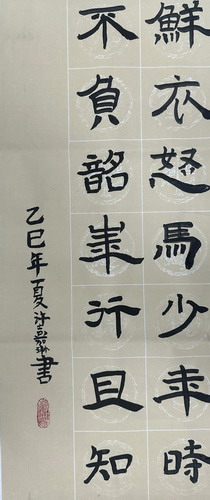 鮮衣怒馬少年時
不負韶華行且知
乙巳年夏許嘉琳書